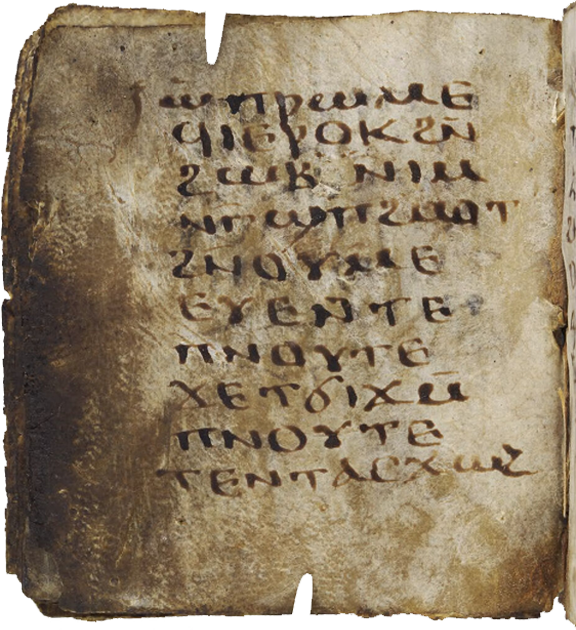 ⲱ̄ⲡⲣⲱⲙⲉ
ϥⲓⲉⲣⲟⲕϩⲛ̄
ϩⲱⲃ ⲛⲓⲙ
ⲛⲅ̄ϣⲡϩⲙⲟⲧ
ϩⲛⲟⲩⲙⲉ
ⲉⲩⲉⲛ̄ⲧⲉ
ⲡⲛⲟⲩⲧⲉ
ϫⲉⲧϭⲓϫⲙ̄
ⲡⲛⲟⲩⲧⲉ
ⲧⲉⲛⲧⲁⲥϫⲱϩ